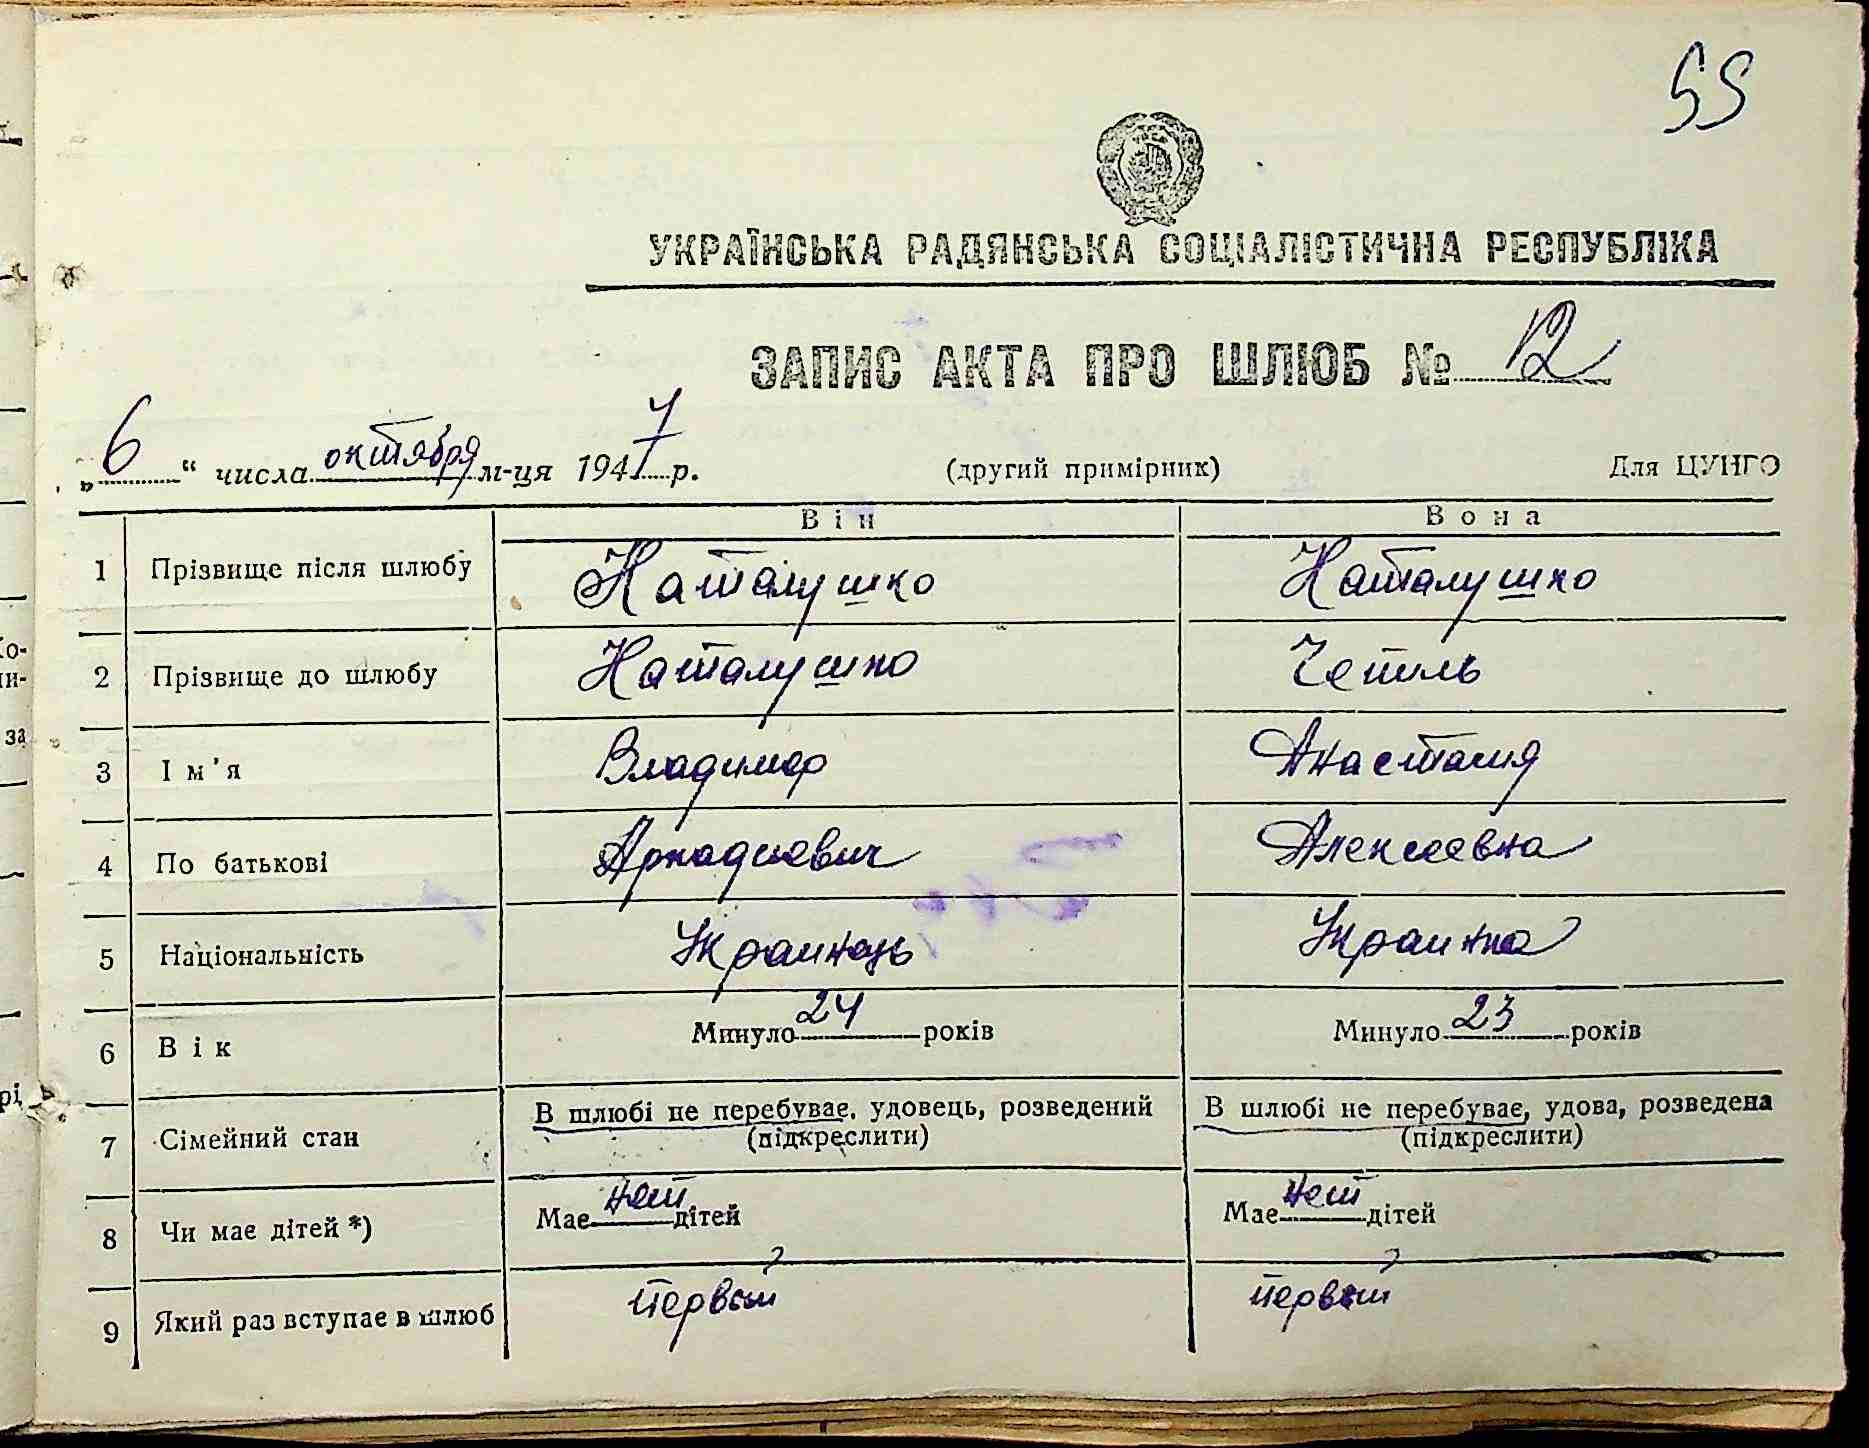 55
УКРАЇНСЬКА РАДЯНСЬКА СОЦІАЛІСТИЧНА РЕСПУБЛІКА
ЗАПИС АКТА ПРО ШЛЮБ № 12
„6“ числа октября м-ця 1947 р. (другий примірник) Для ЦУНГО
Він Вона
1 Прізвище після шлюбу Наталушко Наталушко
2 Прізвище до шлюбу Наталушко
3 Ім'я Владимир Анастасия
4 По батькові Аркадиевич Алексеевна
5 Національність Украинец Украинка
6 Вік Минуло 24 років Минуло 23 років
7 Сімейний стан В шлюбі не перебуває, удовець, розведений В шлюбі не перебуває, удова, розведена
(підкреслити) (підкреслити)
8 Чи має дітей *) Має нет дітей Має нет дітей
9 Який раз вступає в шлюб первый первый